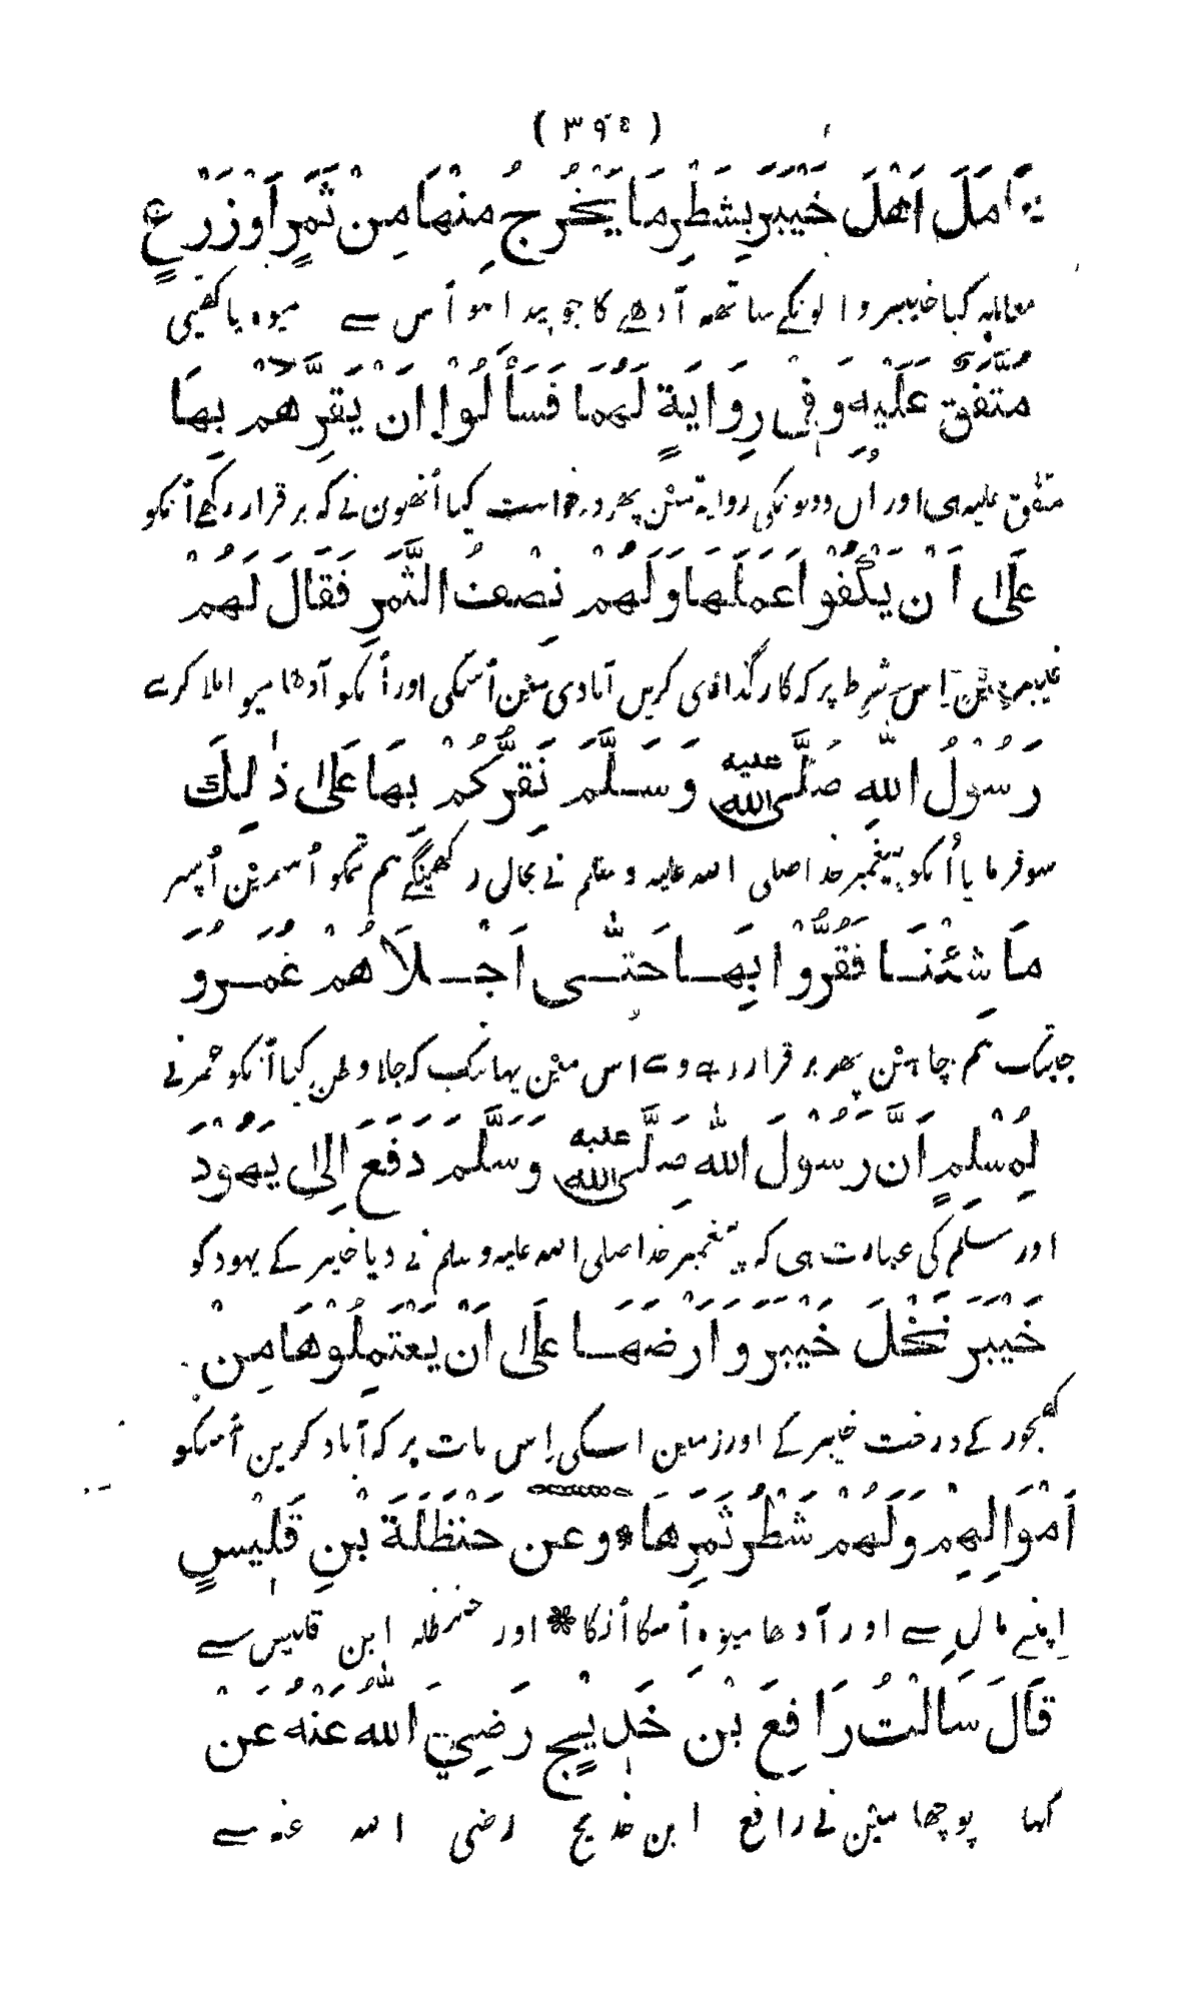 ( ٣٩٥ )
عَامَلَ اَهْلَ خَيْبَرَ بِشَطْرِ مَا يَخْرُجُ مِنْهَا مِنْ ثَمَرٍ اَوْ زَرْعٍ
معاملہ کیا خیبر والونکے ساتھہ آدھے کا جو پیدا ہو اُس سے میوہ یا کھیتی
مُتَّفَقٌ عَلَيْهِ وَفِيْ رِوَايَةٍ لَهُمَا فَسَأَلُوْا اَنْ يُقِرَّهُمْ بِهَا
متفق علیہ ہی اور اُن دونونکی روایة مین پھر درخواست کیا اُنھون نے کہ برقرار رکھے اُنکو
عَلٰى اَنْ يَكْفُوْا عَمَلَهَا وَلَهُمْ نِصْفُ الثَّمَرِ فَقَالَ لَهُمْ
خیبر مین اِس شرط پر کہ کارگذاری کرین آبادی مین اُسکی اور اُنکو آدھا میوا ملا کرے
رَسُوْلُ اللّٰهِ صَلَّى اللّٰه عليه وَسَلَّمَ نُقِرُّكُمْ بِهَا عَلٰى ذٰلِكَ
سو فرمایا اُنکو پیغمبر خدا صلی الله علیه و سلم نے بحال رکھینگے ہم تمکو اُسمین اُپسر
مَا شِئْنَا فَقُرُّوْا بِهَا حَتّٰى اَجْلَاهُمْ عُمَرُ وَ
جبتک ہم چاہین پھر برقرار رہے وے اس مین یہانتک کہ جلاوطن کیا اُنکو عمر نے
لِمُسْلِمٍ اَنَّ رَسُوْلَ اللّٰهِ صَلَّى اللّٰه عليه وَسَلَّمَ دَفَعَ اِلٰى يَهُوْدَ
اور مسلم کی عبارت ہی کہ پیغمبر خدا صلی الله علیه وسلم نے دیا خیبر کے یہود کو
خَيْبَرَ نَخْلَ خَيْبَرَ وَ اَرْضَهَا عَلٰى اَنْ يَعْتَمِلُوْهَا مِنْ
کھجور کے درخت خیبر کے اور زمین اسکی اِس بات پر کہ آباد کرین اُسکو
اَمْوَالِهِمْ وَلَهُمْ شَطْرُ ثَمَرِهَا * وعن حَنْظَلَةَ بْنِ قَيْسٍ
اِپنے مال سے اور آدھا میوہ اُسکا اُنکا * اور حنظلہ ابن قیس سے
قَالَ سَالْتُ رَافِعَ بْنَ خَدِيْجٍ رَضِيَ اللّٰهُ عَنْهُ عَنْ
کہا پوچھا مین نے رافع ابن خدیج رضی الله عنه سے